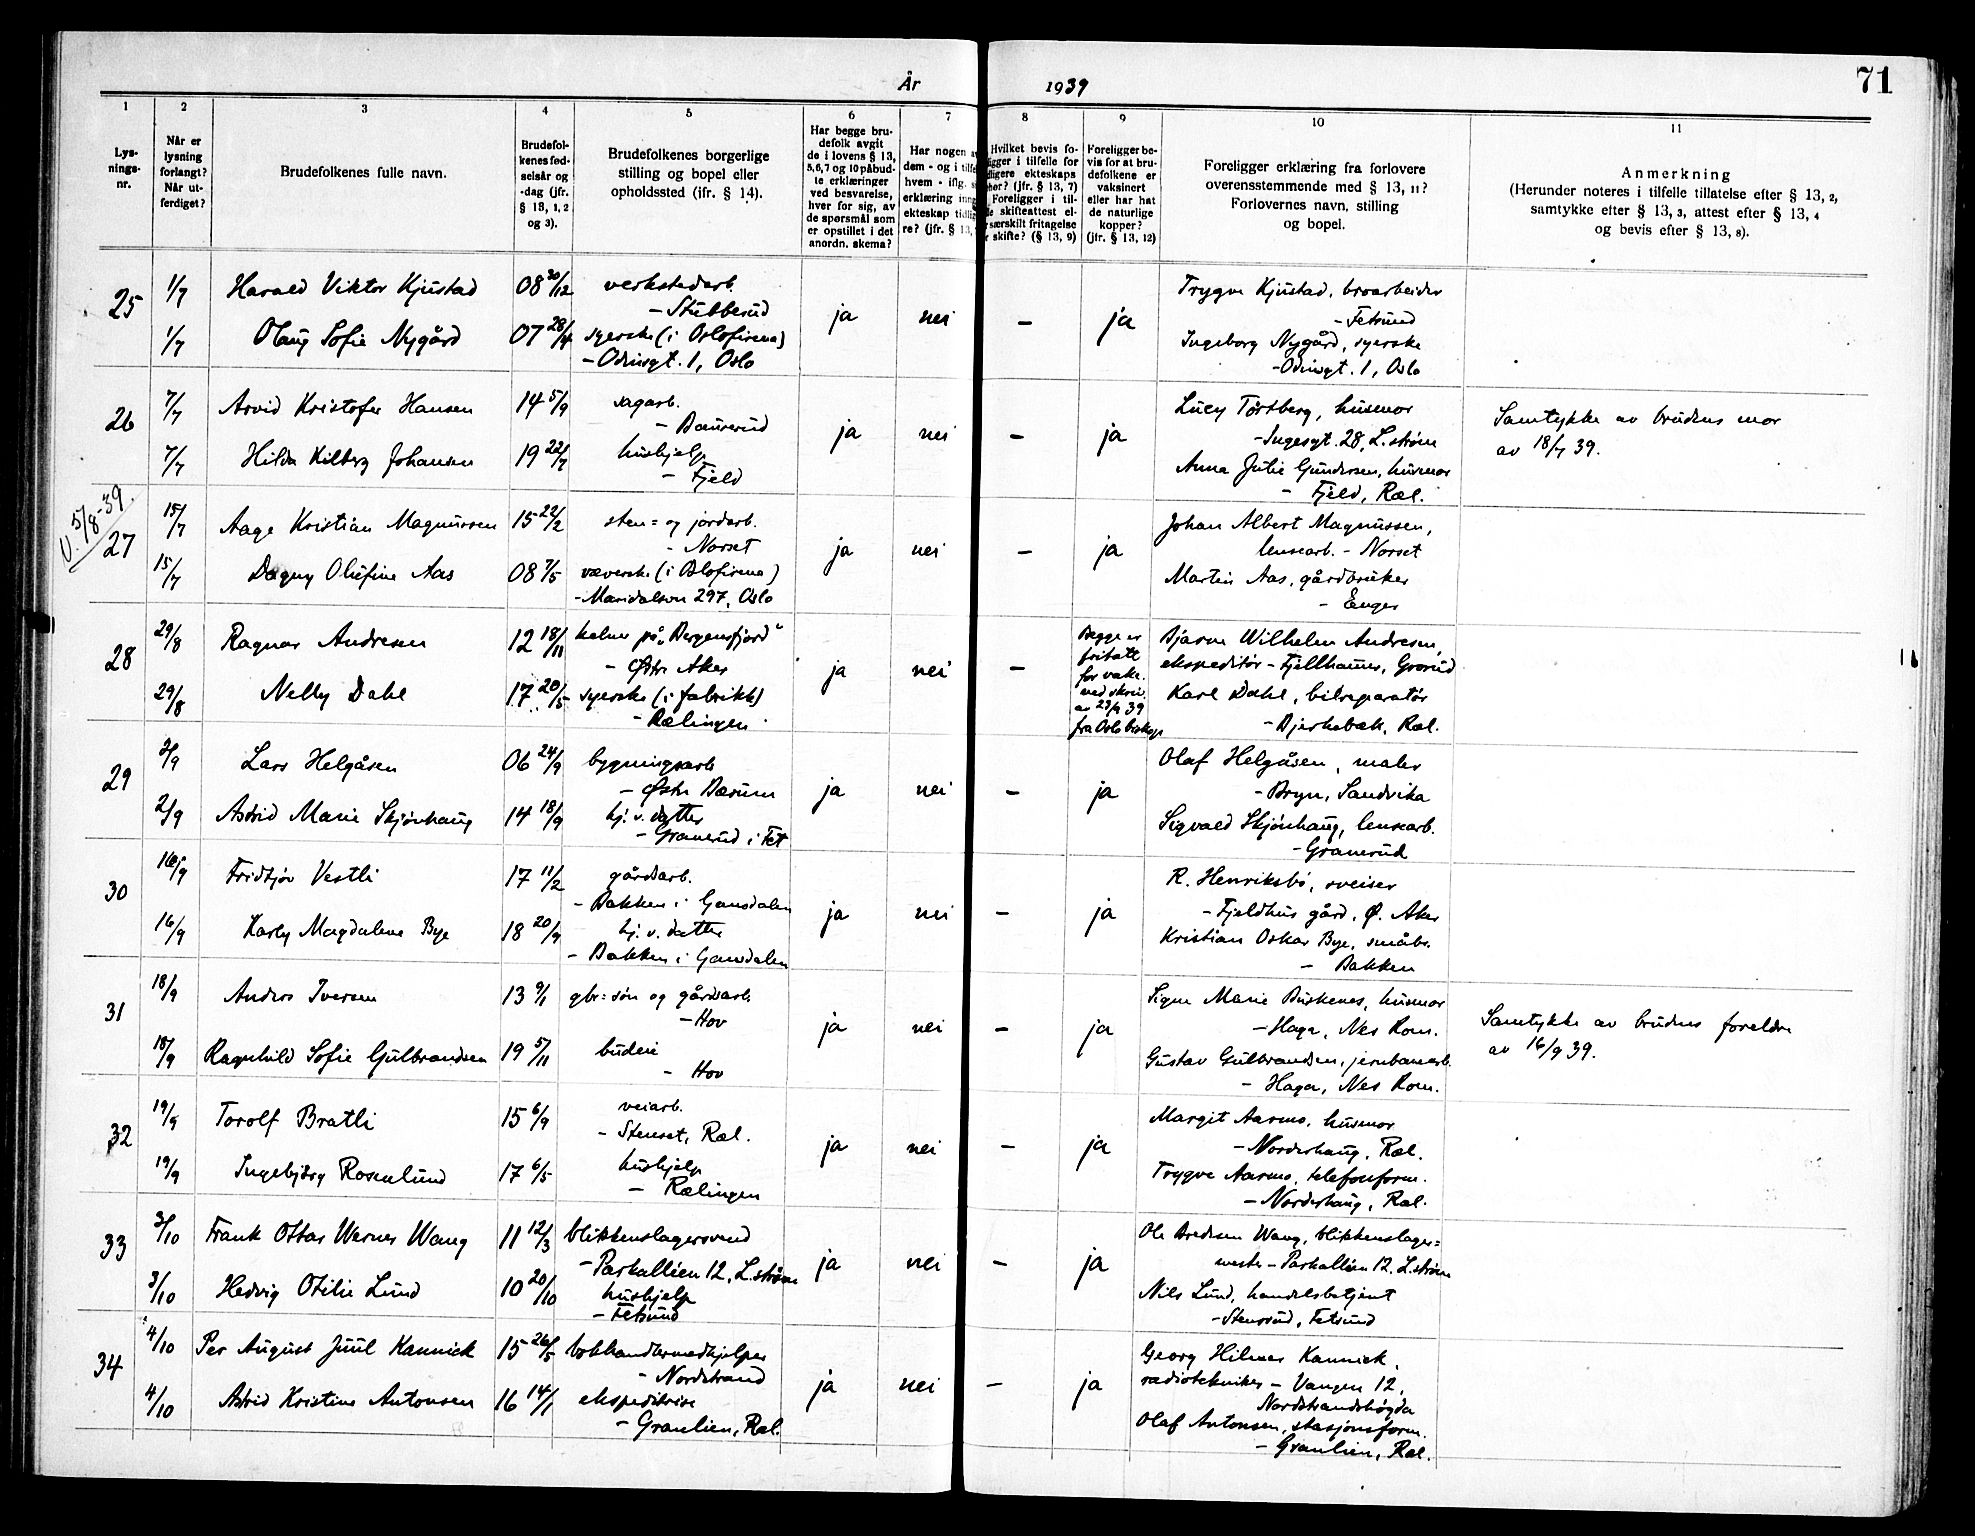 År 1939
71
1 2 3 4 5 6 7 8 9 10 11
Lysningsnr.
Når er lysning forlangt? Når utferdiget?
Brudefolkenes fulle navn.
Brudefolkenes fødselsår og -dag (jfr. § 13, 1, 2 og 3).
Brudefolkenes borgerlige stilling og bopel eller opholdssted (jfr. § 14).
Har begge brudefolk avgit de i lovens § 13, 5, 6, 7 og 10 påbudte erklæringer ved besvarelse, hver for sig, av de spørsmål som er opstillet i det anordn. skema?
Har nogen av dem - og i tilfe hvem - iflg. s erklæring inng ekteskap tidlig re? (jfr. § 13,
Hvilket bevis fo- ligger i tilfelle for dligere ekteskaps hør? (jfr. § 13, 7) Foreligger i til- de skifteattest el- særskilt fritagelse r skifte? (§ 13, 9)
Foreligger bevis for at brudefolkene er vaksinert eller har hat de naturlige kopper? (jfr. § 13, 12)
Foreligger erklæring fra forlovere overensstemmende med § 13, 11? Forlovernes navn, stilling og bopel.
Anmerkning (Herunder noteres i tilfelle tillatelse efter § 13, 2, samtykke efter § 13, 3, attest efter § 13, 4 og bevis efter § 13, 8).
25
1/7 Harald Viktor Kjustad 08 30/12 verkstedarb.
- Stubberud
1/7 Olaug Sofie Nygård 07 28/4 syerske (i Oslofirma)
- Odinsgt. 1, Oslo
ja nei - ja
Trygve Kjustad, broarbeider
- Fetsund
Ingeborg Nygård, syerske
- Odinsgt. 1, Oslo
26
7/7 Arvid Kristofer Hansen 14 5/9 sagarb.
- Daurerud
7/7 Hilda Kilberg Johansen 19 22/7 hushjelp
- Fjeld
ja nei - ja
Lucy Torsberg, husmor
- Ingesgt. 28, L.strøm
Anna Julie Gundersen, husmor
- Fjeld, Ræl.
Samtykke av brudens mor
av 18/7 39.
V. 5/8-39.
27
15/7 Aage Kristian Magnussen 15 22/2 sten= og jordarb.
- Norset
15/7 Dagny Olufine Aas 08 7/5 veverske (i Oslofirma)
- Maridalsvn 297, Oslo
ja nei - ja
Johan Albert Magnussen,
lensearb. - Norset
Martin Aas, gårdbruker
- Enger
28
29/8 Ragnar Andresen 12 18/11 kelner på "Bergensfjord"
- Østr. Aker
29/8 Nelly Dahl 17 20/5 syerske (i fabrikk)
- Rælingen
ja nei -
Begge er
fritatt
for vaks.
ved skriv.
av 23/9 39
fra Oslo biskop
Bjarne Wilhelm Andresen,
ekspeditør - Fjellhamar, Grorud
Karl Dahl, bilreparatør
- Bjerkebæk, Ræl.
29
2/9 Lars Helgåsen 06 24/9 bygningsarb
- Østr Bærum
2/9 Astrid Marie Skjønhaug 14 18/9 hj. v. datter
- Granerud i Fet
ja nei - ja
Olaf Helgåsen, maler
- Bryn, Sandvika
Sigvald Skjønhaug, lensearb.
- Granerud
30
16/9 Fridtjov Vestli 17 11/2 gårdsarb.
- Bakken i Gansdalen
16/9 Karly Magdalene Bye 18 20/9 hj. v. datter
- Bakken i Gansdalen
ja nei - ja
R. Henriksbø, sveiser
- Fjeldhus gård, Ø. Aker
Kristian Oskar Bye, småbr.
- Bakken
31
18/9 Anders Iversen 13 9/1 gbr=søn og gårdsarb.
- Hov
18/9 Ragnhild Sofie Gulbrandsen 19 5/11 budeie
- Hov
ja nei - ja
Signe Marie Buskenes, husmor
- Haga, Nes Rom.
Gustav Gulbrandsen, jernbanearb.
- Haga, Nes Rom.
Samtykke av brudens foreldre
av 16/9 39.
32
19/9 Torolf Bratli 15 6/9 veiarb.
- Stenset, Ræl.
19/9 Ingebjørg Rosenlund 17 6/5 hushjelp
- Rælingen
ja nei - ja
Margit Aarmo, husmor
- Nordhaug, Ræl.
Trygve Aarmo, telefonform.
- Nordhaug, Ræl.
33
3/10 Frank Ottar Werner Wang 11 12/3 blikkenslagersvend
- Parkalléen 12, L.strøm
3/10 Hedvig Otilie Lund 10 20/10 hushjelp
- Fetsund
ja nei - ja
Ole Bredesen Wang, blikkenslager=
mester - Parkalléen 12, L.strøm
Nils Lund, handelsbetjent
- Stensrud, Fetsund
34
4/10 Per August Juul Kannick 15 26/5 bokhandlermedhjelper
- Nordstrand
4/10 Astrid Kristine Antonsen 16 14/1 ekspeditrise
- Granlien, Ræl.
ja nei - ja
Georg Hilmar Kannick,
radiotekniker - Vangen 12,
Nordstrandshøgda
Olaf Antonsen, stasjonsform.
- Granlien, Ræl.